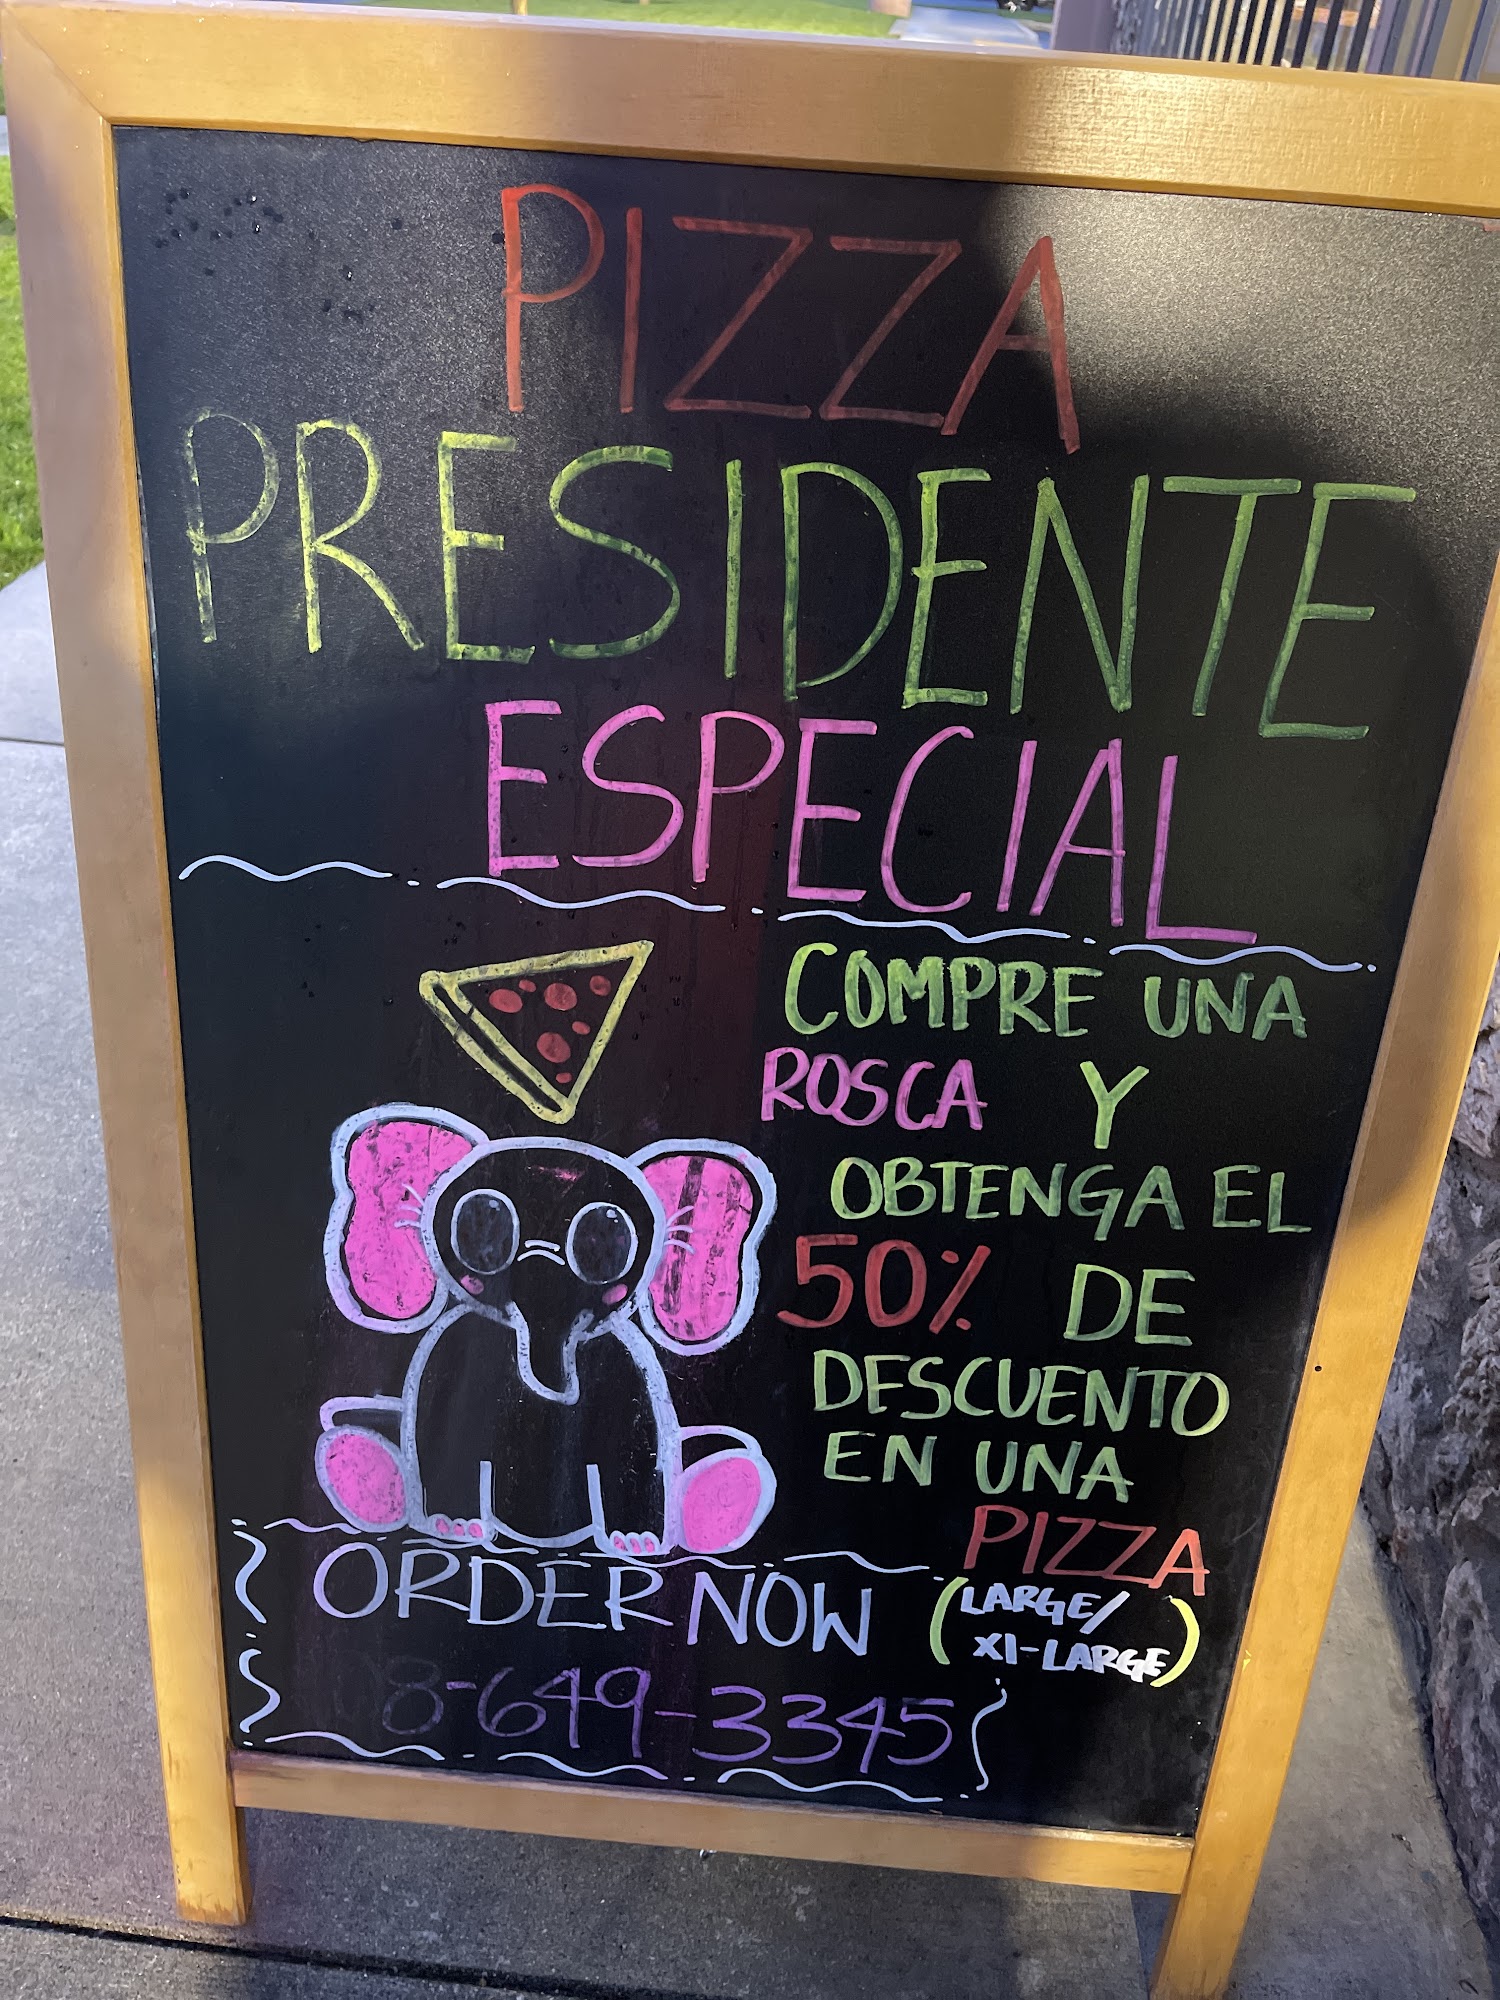 PIZZA
PRESIDENTE
ESPECIAL
COMPRE UNA
ROSCA Y
OBTENGA EL
50% DE
DESCUENTO
EN UNA
PIZZA
(LARGE/
XL-LARGE)
ORDER NOW
8-649-3345